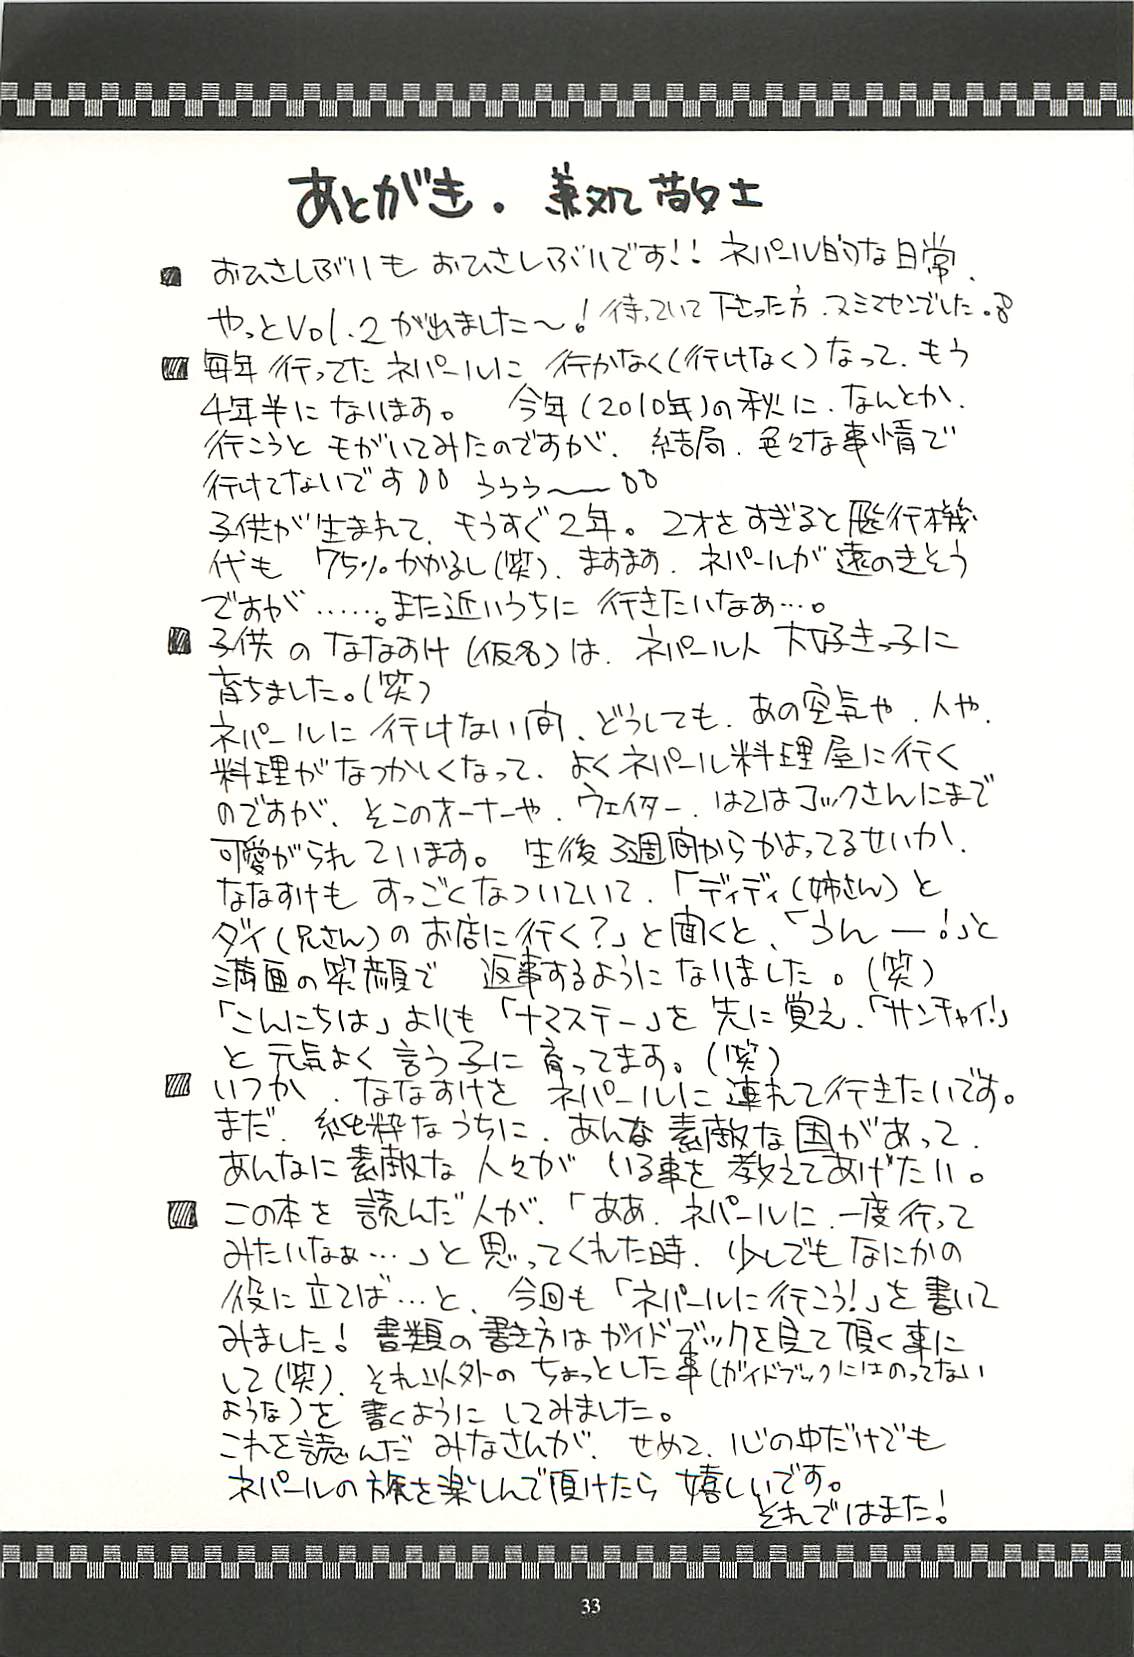 あとがき. 兼処敬士
おひさしぶりもおひさしぶりです!! ネパール的な日常、
やっとVol.2が出ました〜! 待っていて下さった方、スミマセンでした。
毎年行ってたネパールに行かなく(行けなく)なって、もう
4年半になります。 今年(2010年)の秋に、なんとか、
行こうとモがいてみたのですが、結局、色々な事情で
行けてないです うぅぅ〜
子供が生まれて、もうすぐ2年。2才をすぎると飛行機
代も75%かかるし(笑)、ますます、ネパールが遠のきそう
ですが……。また近いうちに行きたいなぁ…。
子供のななすけ(仮名)は、ネパール人大好きっ子に
育ちました。(笑)
ネパールに行けない間、どうしても、あの空気や、人や、
料理がなつかしくなって、よくネパール料理屋に行く
のですが、そこのオーナーや、ウェイター、はてはコックさんにまで
可愛がられています。 生後3週間からかよってるせいか、
ななすけもすっごくなついていて、「ディディ(姉さん)と
ダイ(兄さん)のお店に行く?」と聞くと、「うんー!」と
満面の笑顔で 返事するようになりました。(笑)
「こんにちは」よりも「ナマステー」を先に覚え、「サンチャイ!」
と元気よく言う子に育ってます。(笑)
いつか、ななすけをネパールに連れて行きたいです。
まだ、純粋なうちに、あんな素敵な国があって、
あんなに素敵な人々がいる事を教えてあげたい。
この本を読んだ人が、「ああ、ネパールに、一度行って
みたいなぁ…」と思ってくれた時、少しでもなにかの
役に立てば…と、今回も「ネパールに行こう!」を書いて
みました! 書類の書き方はガイドブックを見て頂く事に
して(笑)、それ以外のちょっとした事(ガイドブックにはのってない
ような)を書くようにしてみました。
これを読んだみなさんが、せめて、心の中だけでも
ネパールの旅を楽しんで頂けたら嬉しいです。
それではまた!
33